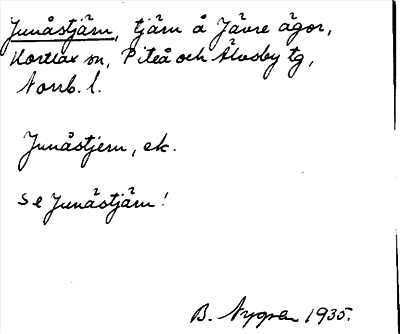 Junåstjärn, tjärn å Jävre ägor,
Hortlax sn, Piteå och Älvsby tg,
Norrb. l.
Junåstjern, ek.
Se Junåstjärn!
B. Nygren 1935.